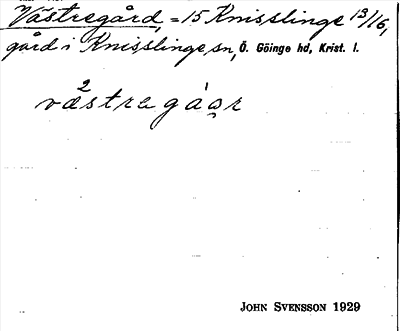 Västregård, = 15 Knisslinge 13/16,
gård i Knisslinge sn, Ö. Göinge hd, Krist. l.
JOHN SVENSSON 1929